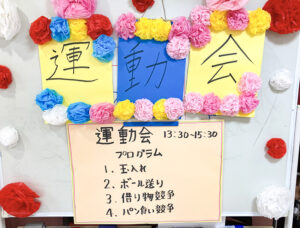 運動会
運動会 13:30~15:30
プログラム
1. 玉入れ
2. ボール送り
3. 借り物競争
4. パン食い競争